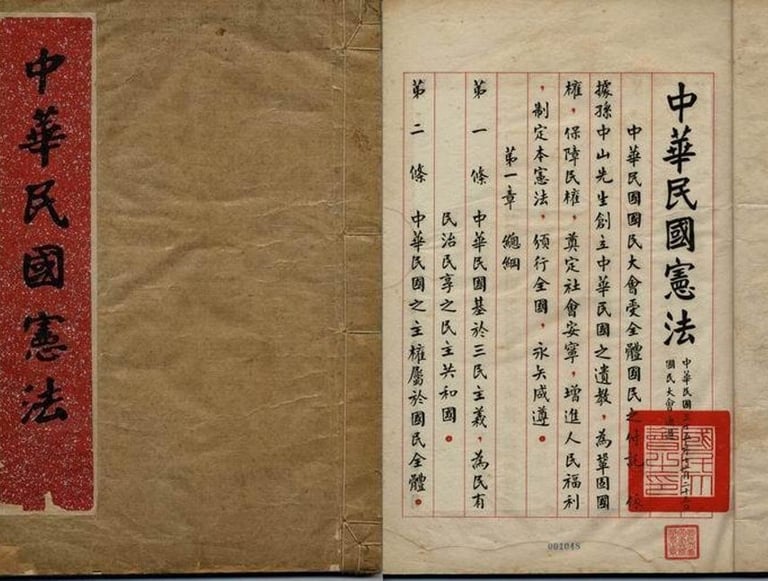 中華民國憲法
中華民國憲法
中華民國三十五年十二月二十五日
國民大會通過
中華民國國民大會受全體國民之付託依
據孫中山先生創立中華民國之遺教，為鞏固國
權，保障民權，奠定社會安寧，增進人民福利
，制定本憲法，頒行全國，永矢咸遵。
第一章 總綱
第一條 中華民國基於三民主義，為民有
民治民享之民主共和國。
第二條 中華民國之主權屬於國民全體。
國民大會之印
001048